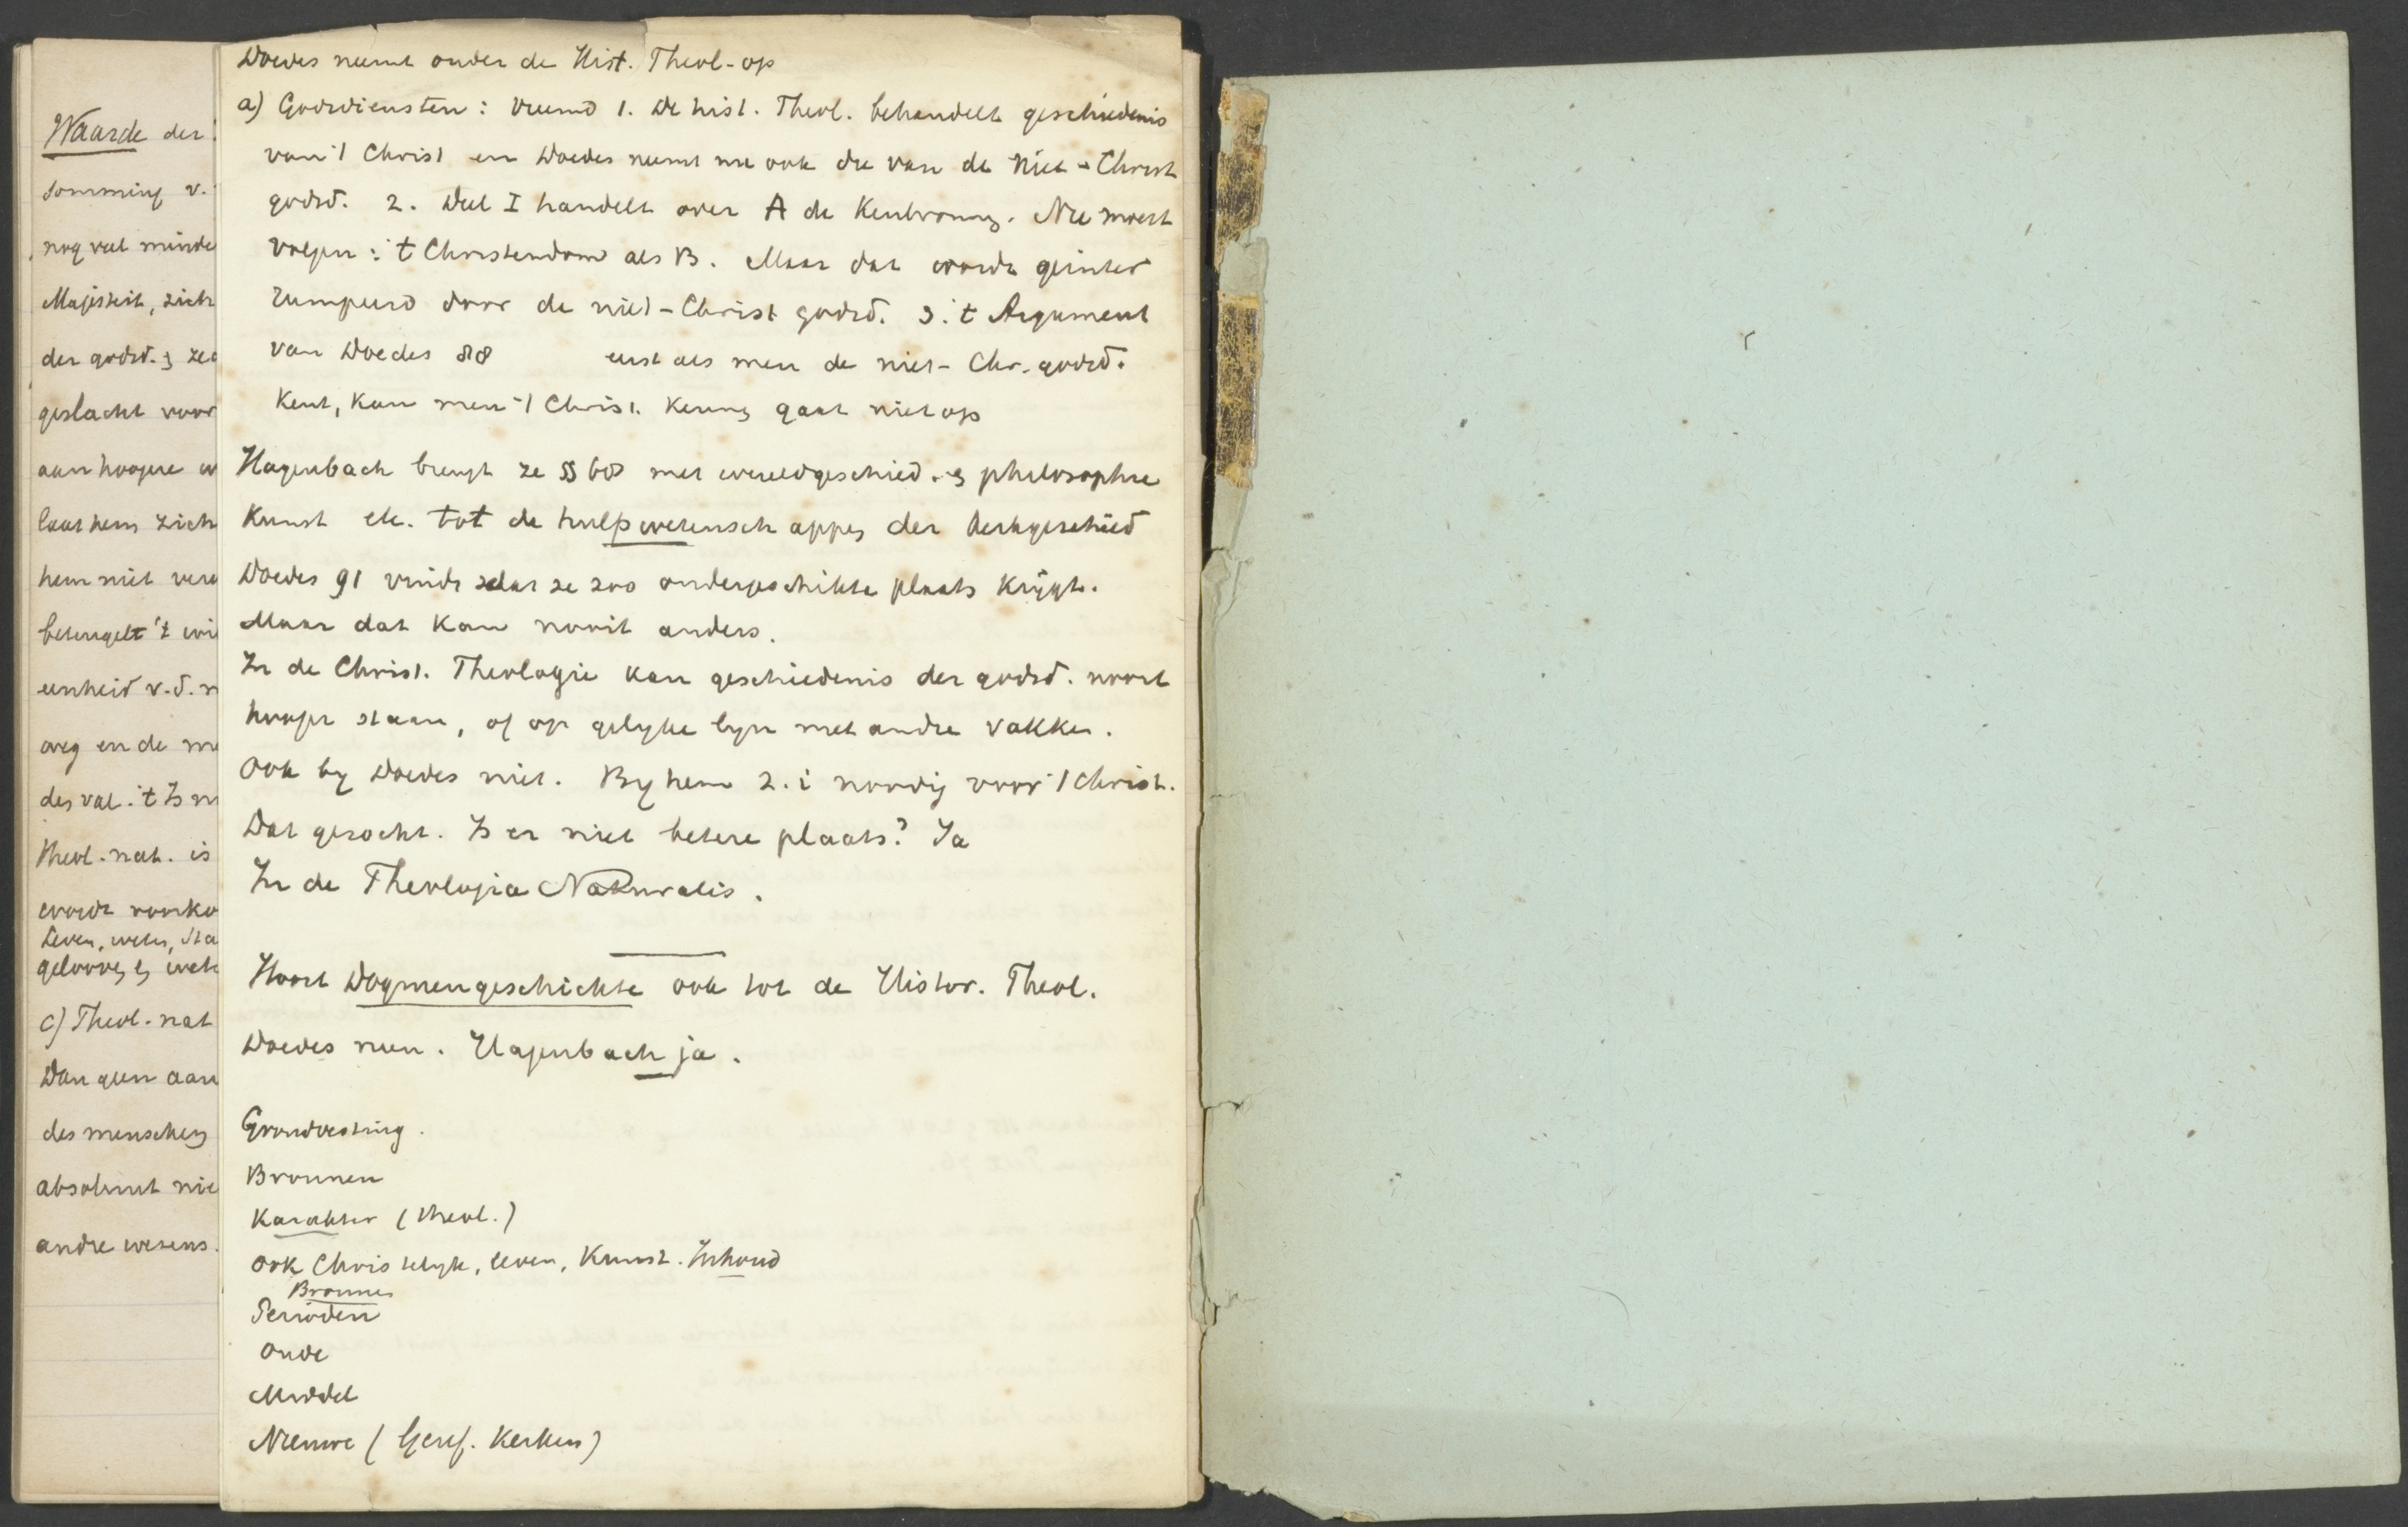 Waarde der
somming v.
nog veel minde
Majesteit, zich
der godsd. en zed
geslacht voor
aan hoogere w
laat hem zich
hem niet vere
beteugelt 't wi
eenheid v. d. m
weg en de me
des val. 't Is m
theol. nat. is
wordt voorko
Leven, weten, sta
gelooven en wet
c) Theol. nat
Dan geen aan
des menschen
absoluut nie
andre wezens.
Doedes neemt onder de Hist. Theol. op
a) Godsdiensten: vreemd 1. De hist. Theol. behandelt geschiedenis
van 't Christ en Doedes neemt nu ook die van de Niet-Christ
godsd. 2. Deel I handelt over A de Kenbronnen. Nu moest
volgen: 't Christendom als B. Maar dat wordt geinter
rumpeerd door de niet-Christ godsd. 3. 't Argument
van Doedes 88 eerst als men de niet-Chr. godsd.
kent, kan men 't Christ. kennen gaat niet op
Hagenbach brengt ze § 68 met wereldgeschied. en philosophie
Kunst etc. tot de hulpwetenschappen der Kerkgeschied
Doedes 91 vindt dat ze zoo ondergeschikte plaats krijgt.
Maar dat kan nooit anders.
In de Christ. Theologie kan geschiedenis der godsd. nooit
hooger staan, of op gelyke lyn met andre vakken.
Ook by Doedes niet. By hem z. i noodig voor 't Christ.
Dat gezocht. Is er niet betere plaats? Ja
In de Theologia Naturalis.
Hoort Dogmengeschichte ook tot de Histor. Theol.
Doedes neen. Hagenbach ja.
Grondvesting.
Bronnen
Karakter (theol.)
ook Christelyk, leven, Kunst. Inhoud
Bronnen
Perioden
Oude
Middel
Nieuwe (Geref. Kerken)